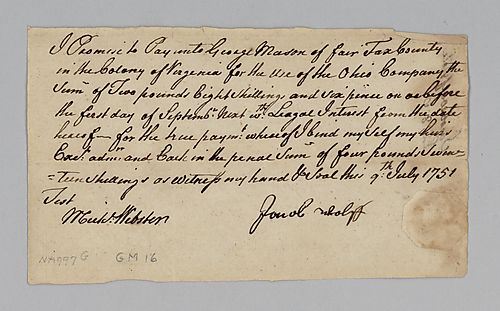 I Promise to Pay unto George Mason of fair Fax County
in the Colony of Virginia for the Use of the Ohio Company the
Sum of Two pounds Eight Shillings and six pence on or before
the first day of Septembr Next wth Leagal Interest from the date
hereof for the true paymt whereof I bind my self my heirs
Exrs admrs and Each in the penal Sum of four pounds Seven
=teen Shillings as witness my hand & Seal this 9th July 1751
Test
Jacob Wolff
NA997G GM 16